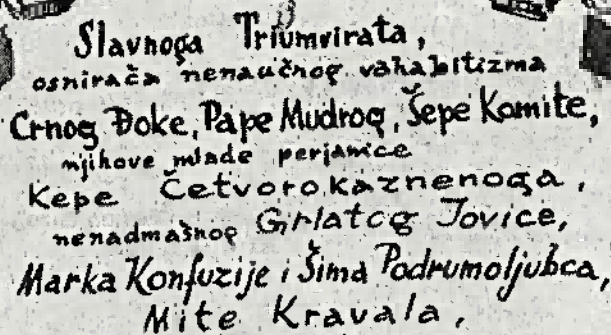 Slavnoga Triumvirata,
osnivača nenaučnog vahabitizma
Crnog Đoke, Pape Mudrog, Šepe Komite,
njihove mlade perjanice
Kepe Četvorokaznenoga,
nenadmašnog Grlatog Jovice,
Marka Konfuzije i Šima Podrumoljubca,
Mite Kravala,